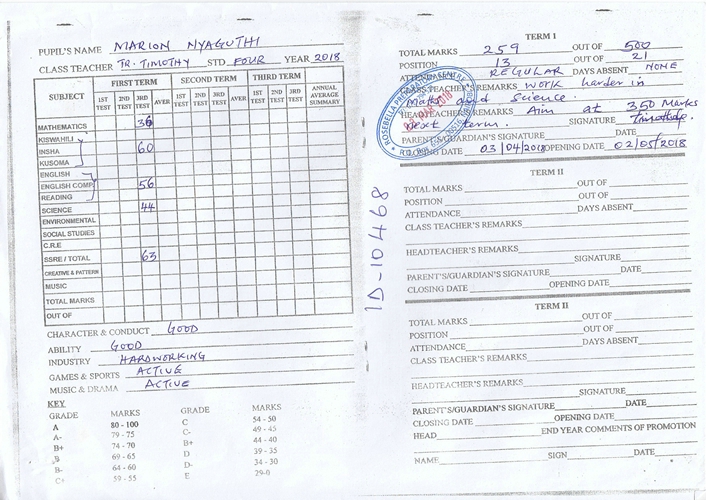 PUPIL'S NAME MARION NYAGUTHI
CLASS TEACHER TR. TIMOTHY STD FOUR YEAR 2018
SUBJECT FIRST TERM SECOND TERM THIRD TERM ANNUAL AVERAGE SUMMARY
1ST TEST 2ND TEST 3RD TEST AVER 1ST TEST 2ND TEST 3RD TEST AVER 1ST TEST 2ND TEST 3RD TEST
MATHEMATICS 36
KISWAHILI
INSHA 60
KUSOMA
ENGLISH
ENGLISH COMP 56
READING
SCIENCE 44
ENVIRONMENTAL
SOCIAL STUDIES
C.R.E
SSRE / TOTAL 63
CREATIVE & PATTERN
MUSIC
TOTAL MARKS
OUT OF
CHARACTER & CONDUCT GOOD
ABILITY GOOD
INDUSTRY HARDWORKING
GAMES & SPORTS ACTIVE
MUSIC & DRAMA ACTIVE
KEY
GRADE MARKS GRADE MARKS
A 80 - 100 C 54 - 50
A- 79 - 75 C- 49 - 45
B+ 74 - 70 B+ 44 - 40
B 69 - 65 D 39 - 35
B- 64 - 60 D- 34 - 30
C+ 59 - 55 E 29-0
ID-10468
TERM 1
TOTAL MARKS 259 OUT OF 500
POSITION 13 OUT OF 21
REGULAR DAYS ABSENT NONE
TEACHER'S REMARKS Work harder in
Maths and Science.
HEADTEACHER'S REMARKS Aim at 350 Marks
Next term. SIGNATURE
PARENT'S/GUARDIAN'S SIGNATURE
DATE 03/04/2018 OPENING DATE 02/05/2018
TERM II
TOTAL MARKS OUT OF
POSITION OUT OF
ATTENDANCE DAYS ABSENT
CLASS TEACHER'S REMARKS
HEADTEACHER'S REMARKS
SIGNATURE
PARENT'S/GUARDIAN'S SIGNATURE DATE
CLOSING DATE OPENING DATE
TERM II
TOTAL MARKS OUT OF
POSITION OUT OF
ATTENDANCE DAYS ABSENT
CLASS TEACHER'S REMARKS
HEADTEACHER'S REMARKS
SIGNATURE
PARENT'S/GUARDIAN'S SIGNATURE DATE
CLOSING DATE OPENING DATE
HEAD END YEAR COMMENTS OF PROMOTION
NAME SIGN DATE